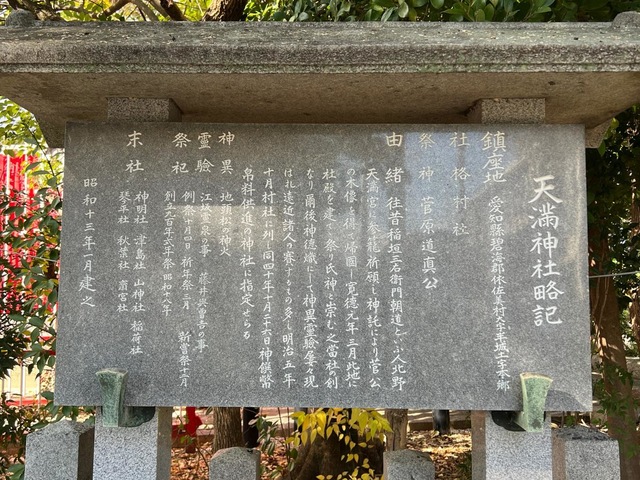 天満神社略記
鎮座地 愛知縣碧海郡依佐美村大字半城土字本郷
社格 村社
祭神 菅原道真公
由緒 往昔稲垣三右衛門朝道といふ人北野
天満宮に参籠祈願し神託により菅公
の木像を得て帰国し寛徳元年三月此地に
社殿を建て祭り氏神と崇む之當社の創
なり爾後神徳熾にして神異霊験屡々現
はれ遠近諸人の賽するもの多し明治五年
十月村社に列し同四十年十月二十六日神饌幣
帛料供進の神社に指定せらる
神異 地頭坂の神火
霊験 江 霊泉の事 藤井 曹 の事
祭祀 例祭十月四日 祈年祭三月 新嘗祭十一月
創立九百年式年祭昭和十八年
末社 神明社 津島社 山神社 稲荷社
琴平社 秋葉社 斎宮社
昭和十三年一月建之